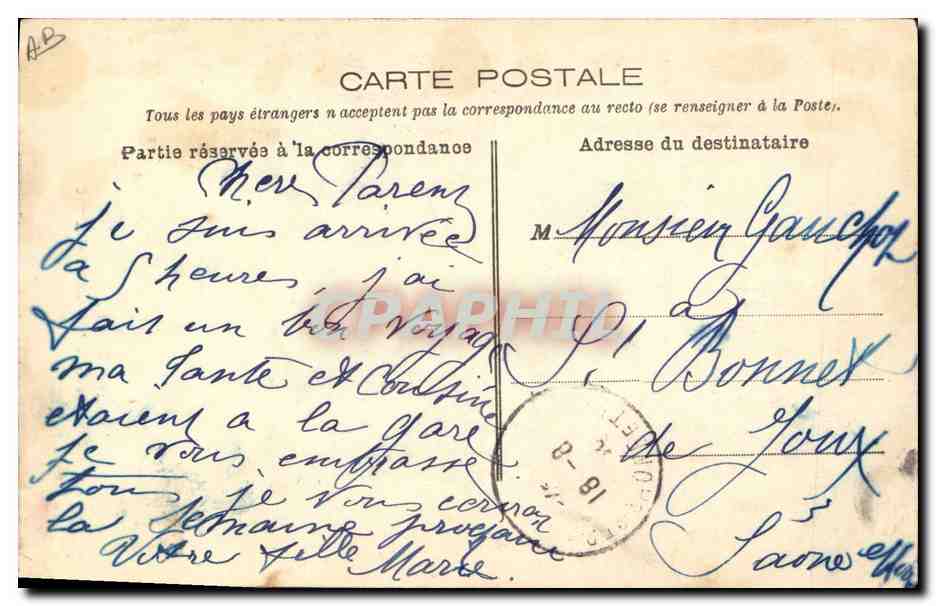 A.B
CARTE POSTALE
Tous les pays étrangers n'acceptent pas la correspondance au recto (se renseigner à la Poste).
Partie réservée à la correspondance
Chers Parents
je suis arrivée
a 5 heures j'ai
fait un bon voyage
ma tante et cousine
etaient a la gare
je vous embrasse
tous je vous ecrirai
la semaine prochaine
Votre fille Marie.
Adresse du destinataire
M Monsieur Gauchoz
a
St Bonnet
de Joux
Saone et
CPAPHIL
18 - 8